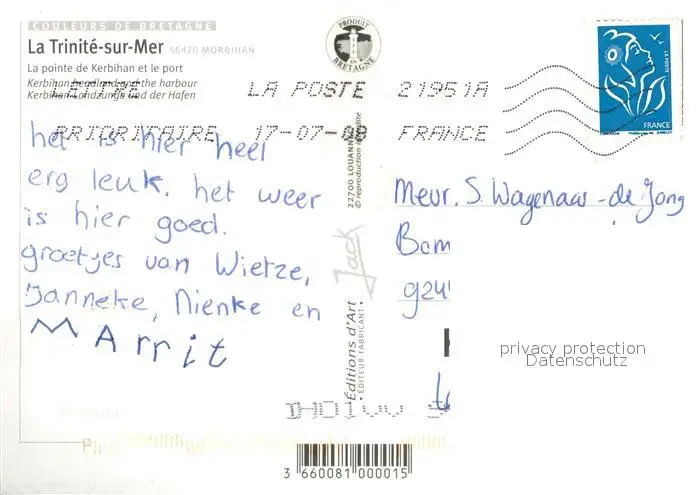 COULEURS DE BRETAGNE
La Trinité-sur-Mer 56470 MORBIHAN
La pointe de Kerbihan et le port
Kerbihan headland and the harbour
Kerbihan Landzunge und der Hafen
PRODUIT EN BRETAGNE
LETTRE LA POSTE 21951A
PRIORITAIRE 17-07-08 FRANCE
LA POSTE
FRANCE
het is hier heel
erg leuk. het weer
is hier goed.
groetjes van Wietze,
Janneke, Nienke en
MArrit
22700 LOUANNEC
© reproduction interdite
Jack
Éditions d'Art
• ÉDITEUR-FABRICANT •
Mevr. S. Wagenaar-de Jong
privacy protection
Datenschutz
3 660081 000015